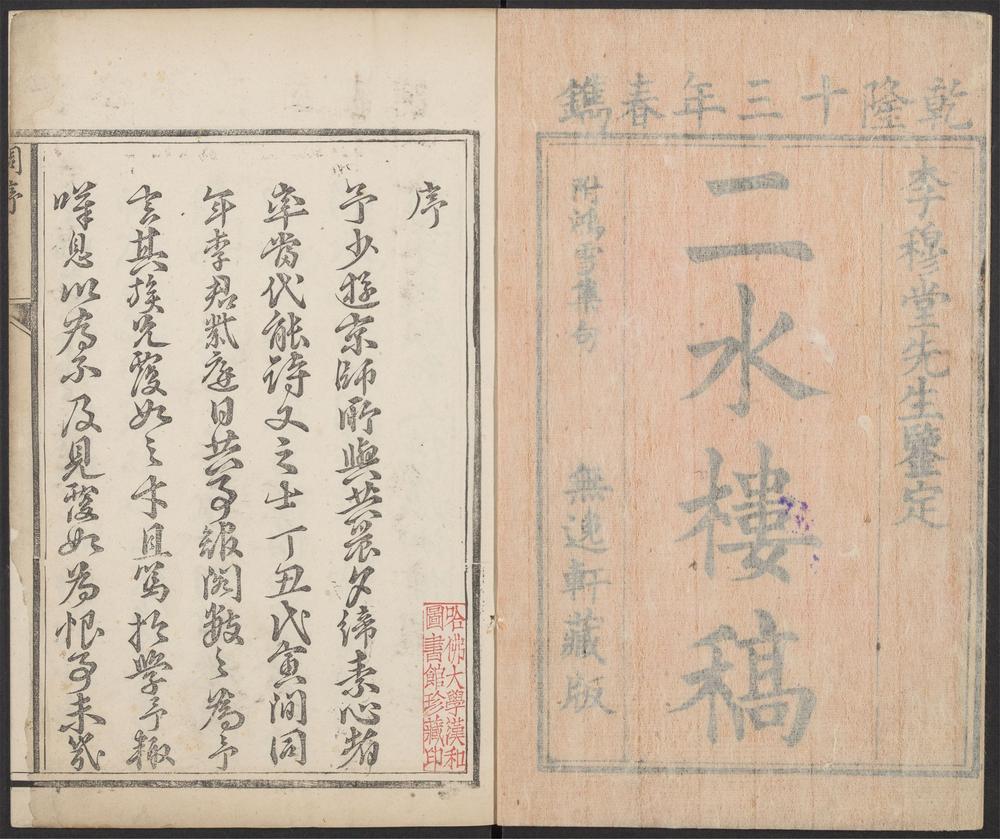 乾隆十三年春鐫
李穆堂先生鑒定
二水樓稿
附鴻雪集句
無逸軒藏版
序
予少遊京師所與共晨夕締素心者
率當代能詩文之士丁丑戊寅間同
年李君紫庭日共事館閣數々為予
言其族兄覆如之才且篤於學予輒
嘆息以為不及見覆如為恨事未幾
哈佛大學漢和
圖書館珍藏印